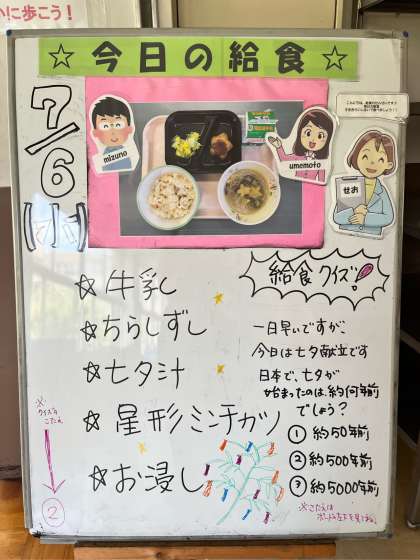 に歩こう！
☆今日の給食☆
7/6
mizuno
umemoto
せお
☆牛乳
☆ちらしずし
☆七夕汁
☆星形ミンチカツ
☆お浸し
給食クイズ!
一日早いですが、
今日は七夕献立です
日本で、七夕が
始まったのは、約何年前
でしょう？
① 約50年前
② 約500年前
③ 約5000年前
※こたえは
ボード左下を見てね
※
クイズの
こたえ
②